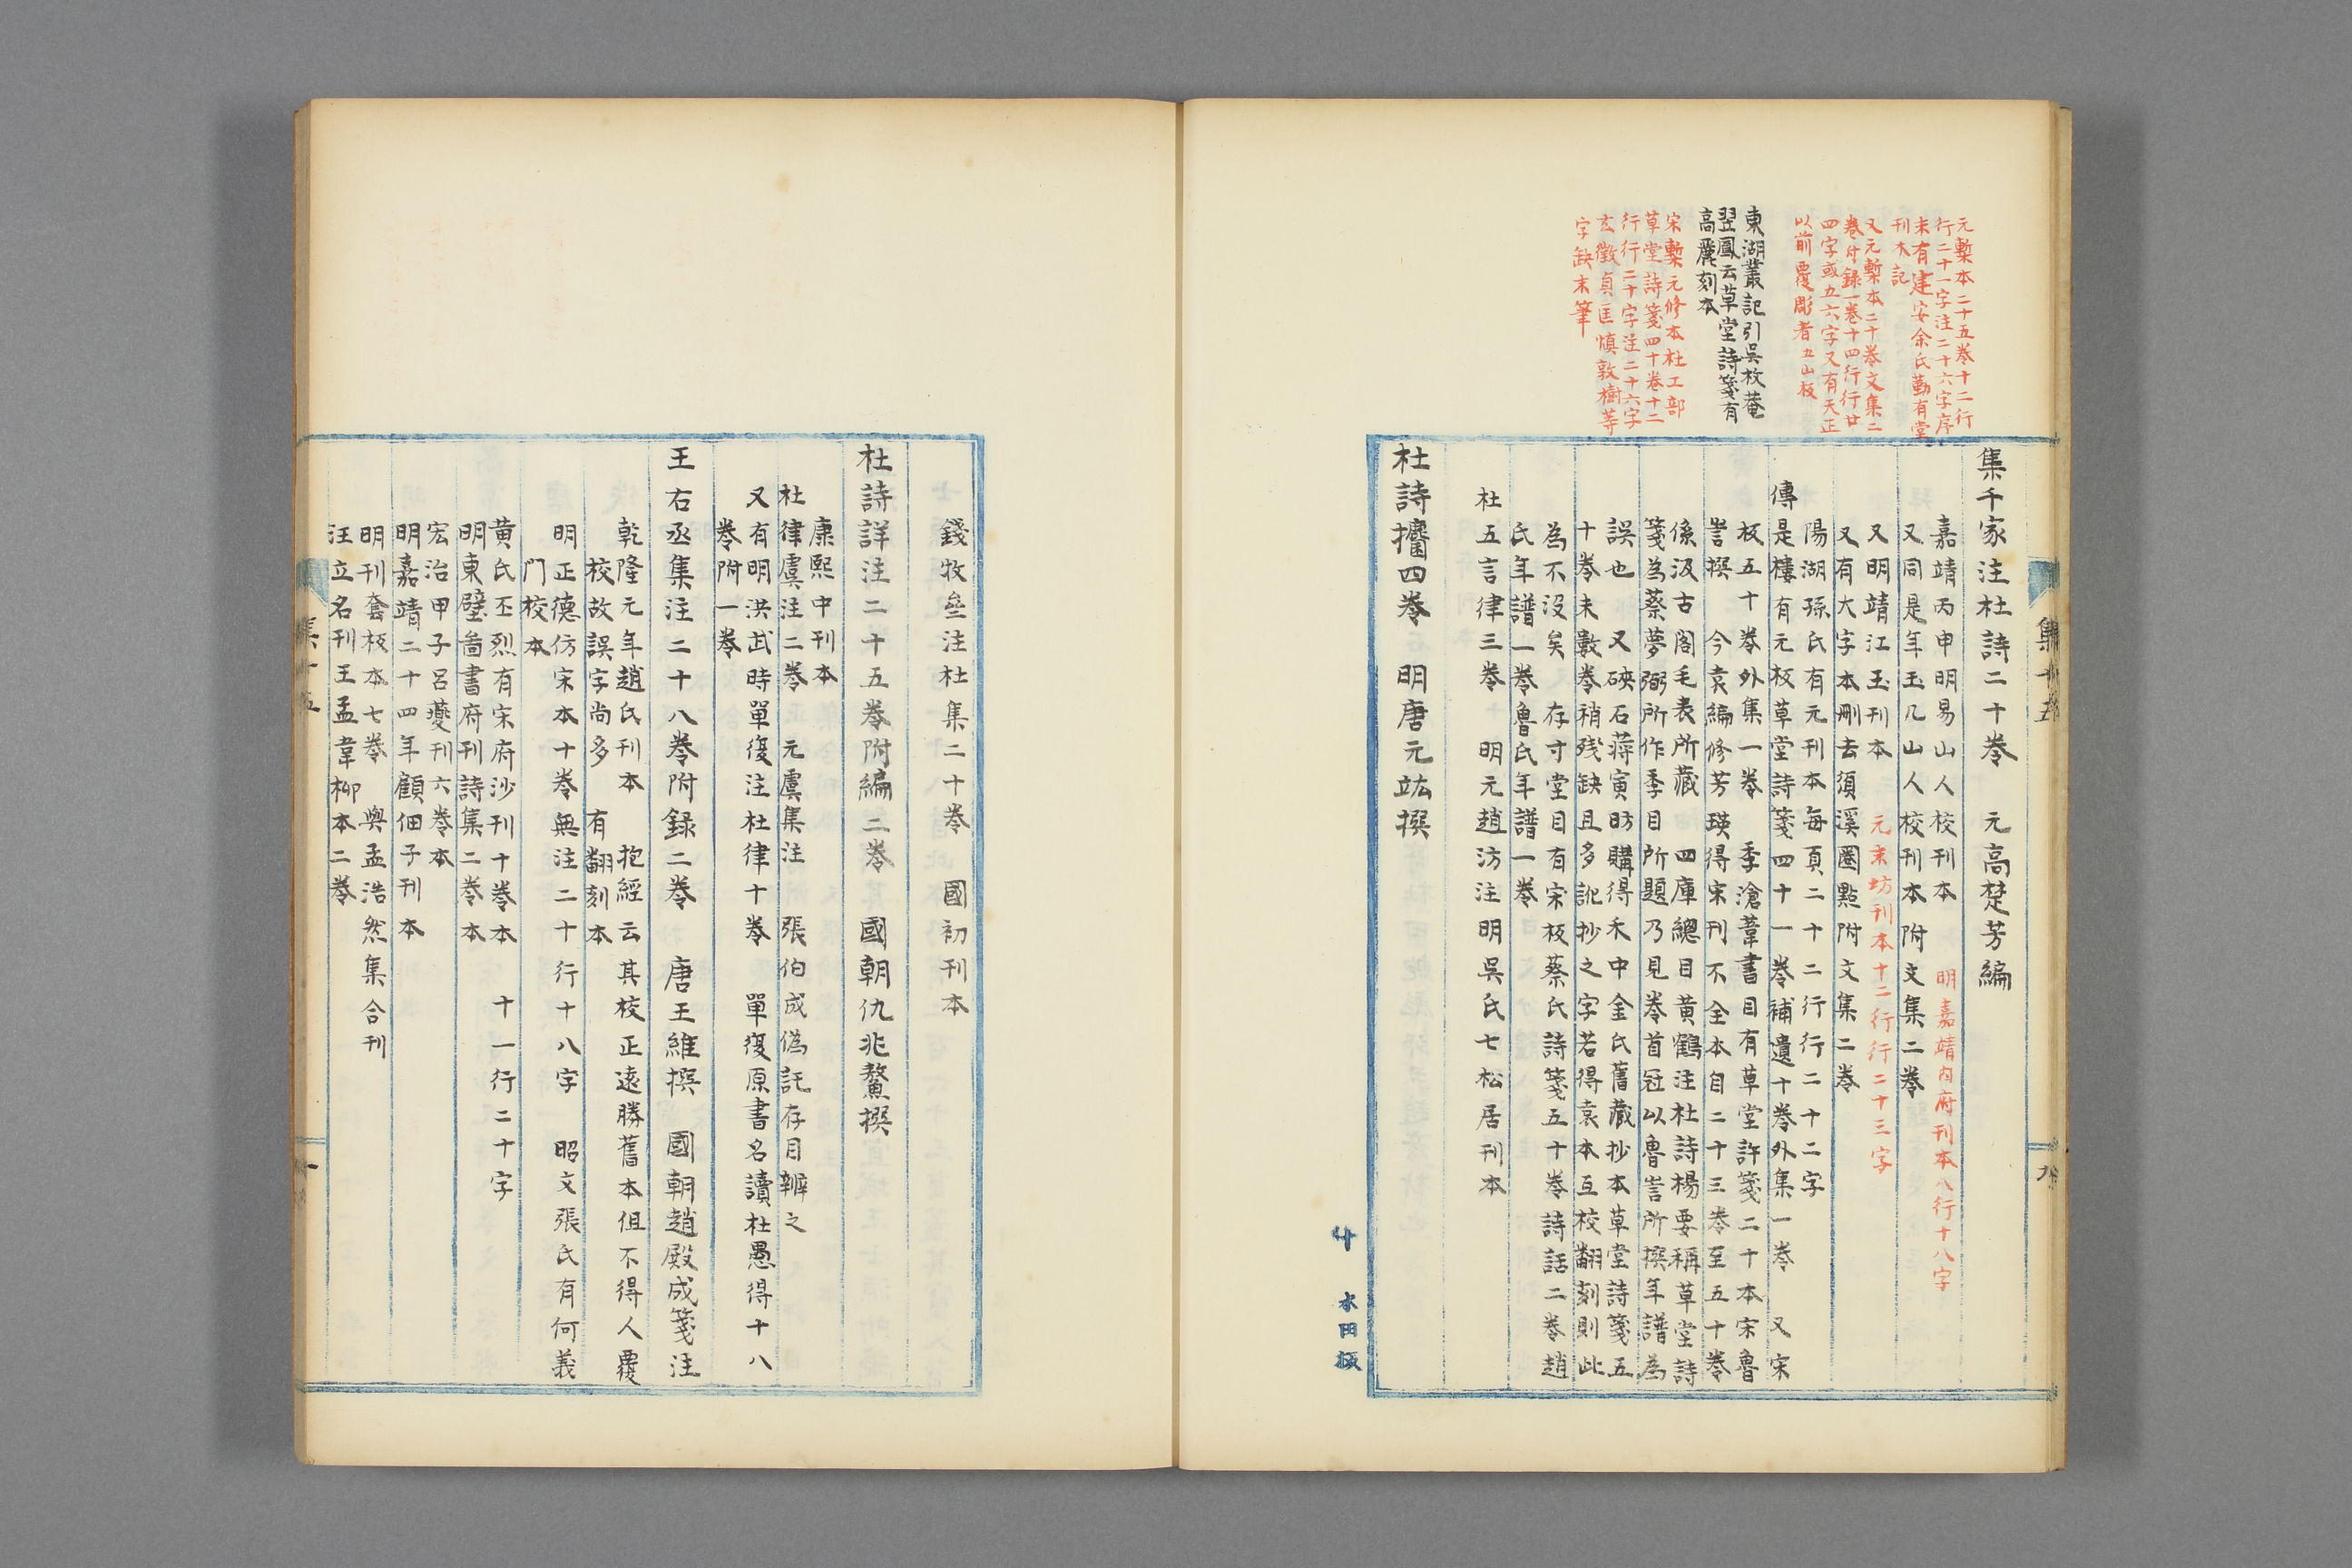 元槧本二十五卷十二行
行二十一字注二十六字序
末有建安余氏勤有堂
刊木記
又元槧本二十卷文集二
卷付録一卷十四行行廿
四字或五六字又有天正
以前覆彫者五山板
東湖叢記引吳枚菴
翌鳳云草堂詩箋有
高麗刻本
宋槧元修本杜工部
草堂詩箋四十卷十二
行行二十字注二十六字
玄徵貞匡慎敦樹等
字缺末筆
集十五
九
集千家注杜詩二十卷 元高楚芳編
嘉靖丙申明易山人校刊本 明嘉靖內府刊本八行十八字
又同是年玉几山人校刊本附文集二卷
又明靖江玉刊本 元末坊刊本十二行行二十三字
又有大字本刪去須溪圈點附文集二卷
陽湖孫氏有元刊本每頁二十二行行二十二字
傳是樓有元板草堂詩箋四十一卷補遺十卷外集一卷 又宋
板五十卷外集一卷 季滄葦書目有草堂許箋二十本宋魯
訔撰 今袁編修芳瑛得宋刊不全本自二十三卷至五十卷
係汲古閣毛表所藏 四庫總目黃鶴注杜詩楊要稱草堂詩
箋為蔡夢弼所作季目所題乃見卷首冠以魯訔所撰年譜為
誤也 又硤石蔣寅昉購得禾中金氏舊藏抄本草堂詩箋五
十卷末數卷稍殘缺且多訛抄之字若得袁本互校翻刻則此
為不沒矣 存寸堂目有宋板蔡氏詩箋五十卷詩話二卷趙
氏年譜一卷魯氏年譜一卷
杜五言律三卷 明元趙汸注明吳氏七松居刊本
杜詩攟四卷 明唐元竑撰
廿 水田板
錢牧壘注杜集二十卷 國初刊本
杜詩詳注二十五卷附編二卷 國朝仇兆鰲撰
康熙中刊本
杜律虞注二卷 元虞集注 張伯成偽託存目辨之
又有明洪武時單復注杜律十卷 單復原書名讀杜愚得十八
卷附一卷
王右丞集注二十八卷附録二卷 唐王維撰 國朝趙殿成箋注
乾隆元年趙氏刊本 抱經云其校正遠勝舊本但不得人覆
校故誤字尚多 有翻刻本
明正德仿宋本十卷無注二十行行十八字 昭文張氏有何義
門校本
黃氏丕烈有宋府沙刊十卷本 十一行二十字
明東壁啚書府刊詩集二卷本
宏治甲子呂夔刊六卷本
明嘉靖二十四年顧佃子刊本
明刊套板本七卷 與孟浩然集合刊
汪立名刊王孟韋柳本二卷
集十五
十